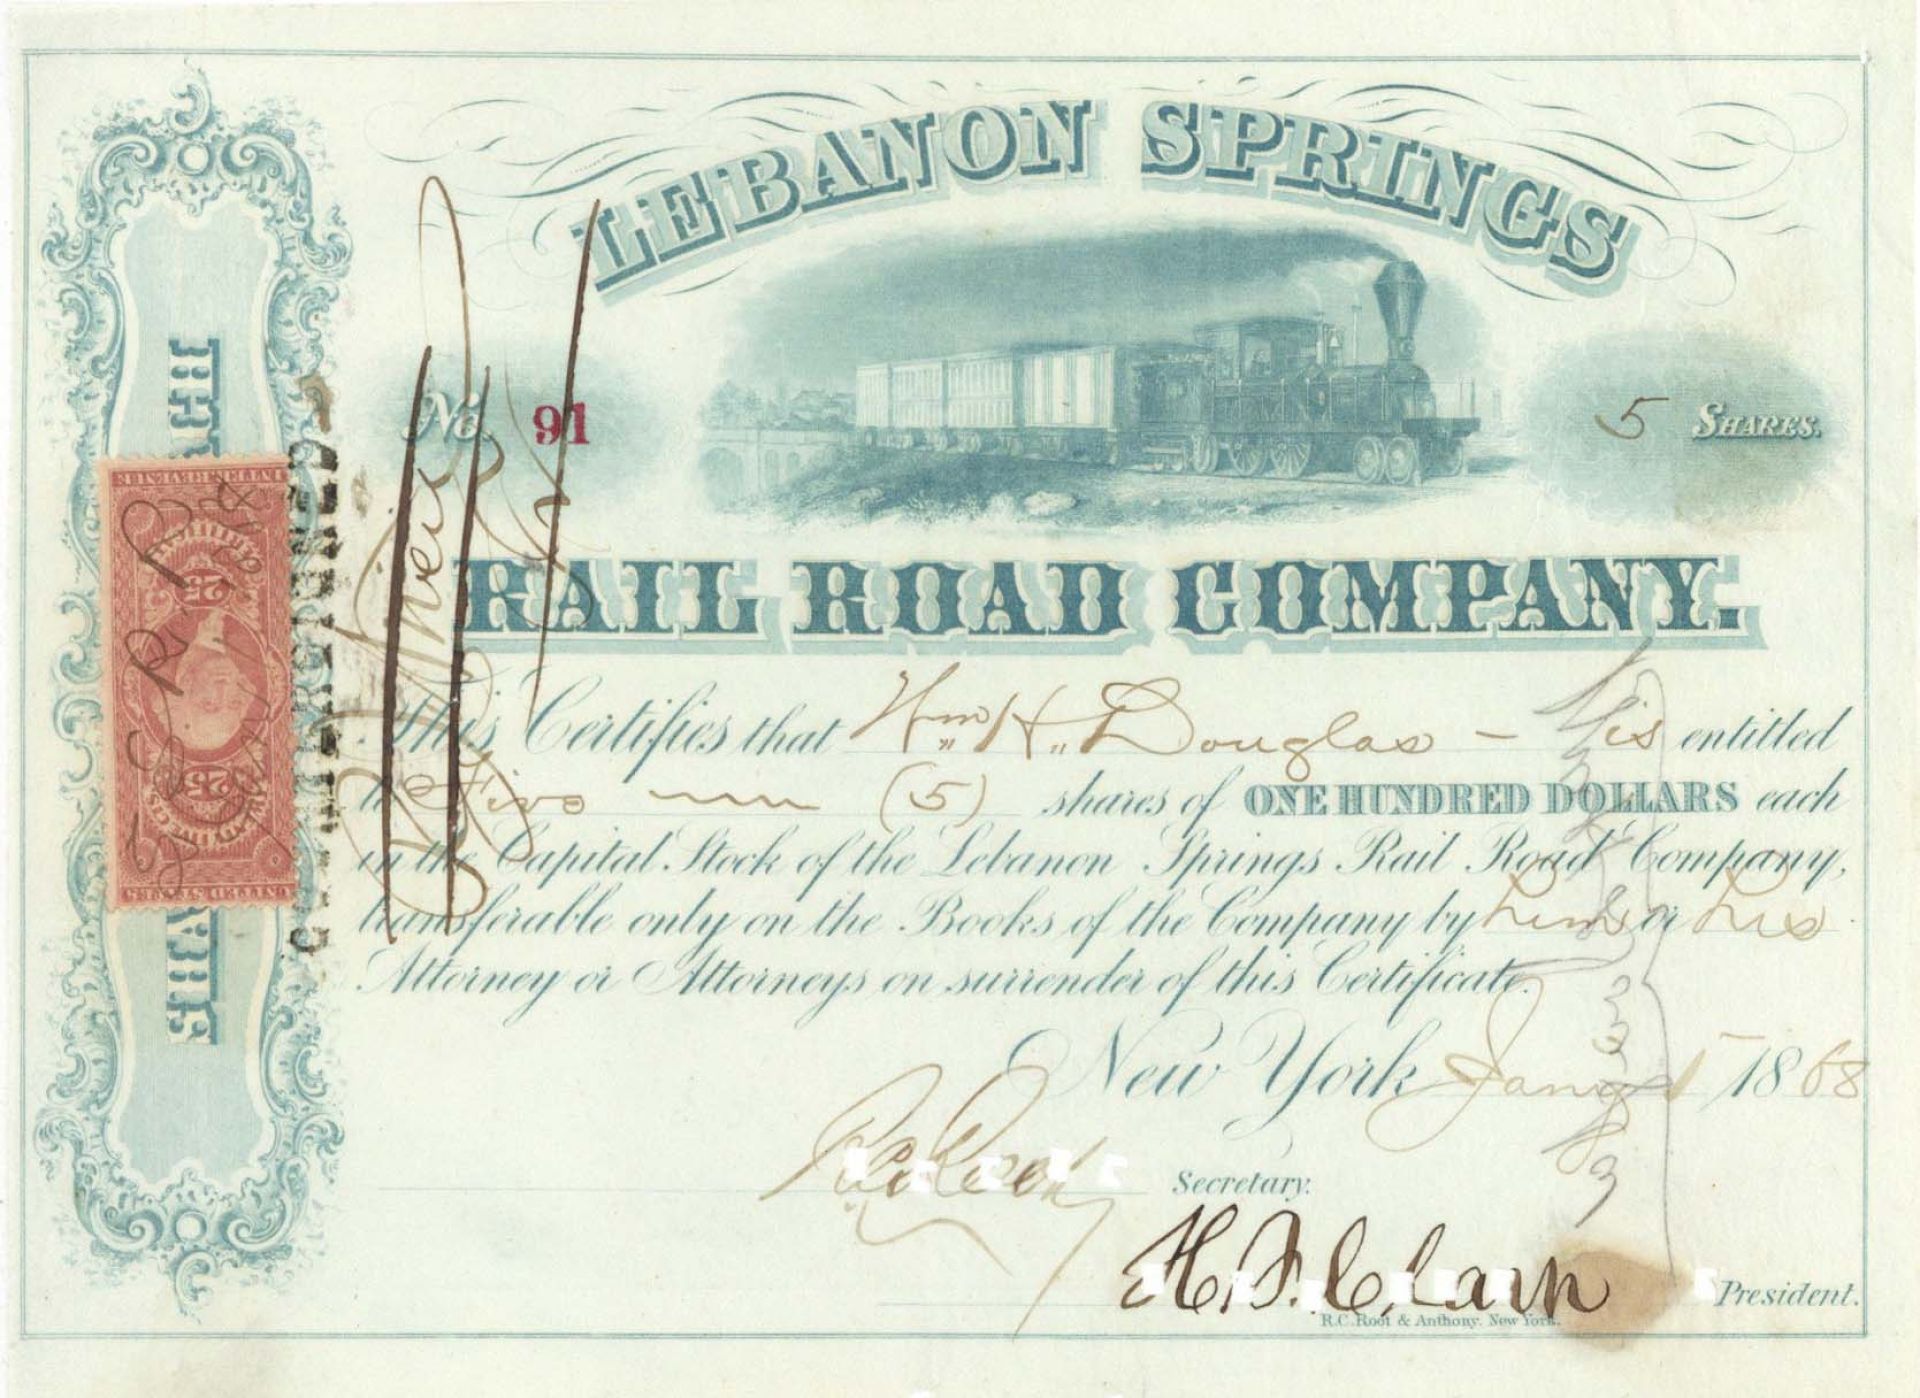 LEBANON SPRINGS
No 91
5 SHARES.
RAIL ROAD COMPANY.
This Certifies that Wm. H. Douglas - is entitled
to Five (5) shares of ONE HUNDRED DOLLARS each
in the Capital Stock of the Lebanon Springs Rail Road Company,
transferable only on the Books of the Company by him or his
Attorney or Attorneys on surrender of this Certificate.
New York Jany 1 1868
Secretary.
H. F. Clark
President.
R.C. Root & Anthony. New York.
COUNTERSIGNED
INTER. REVENUE
25
25
UNITED STATES